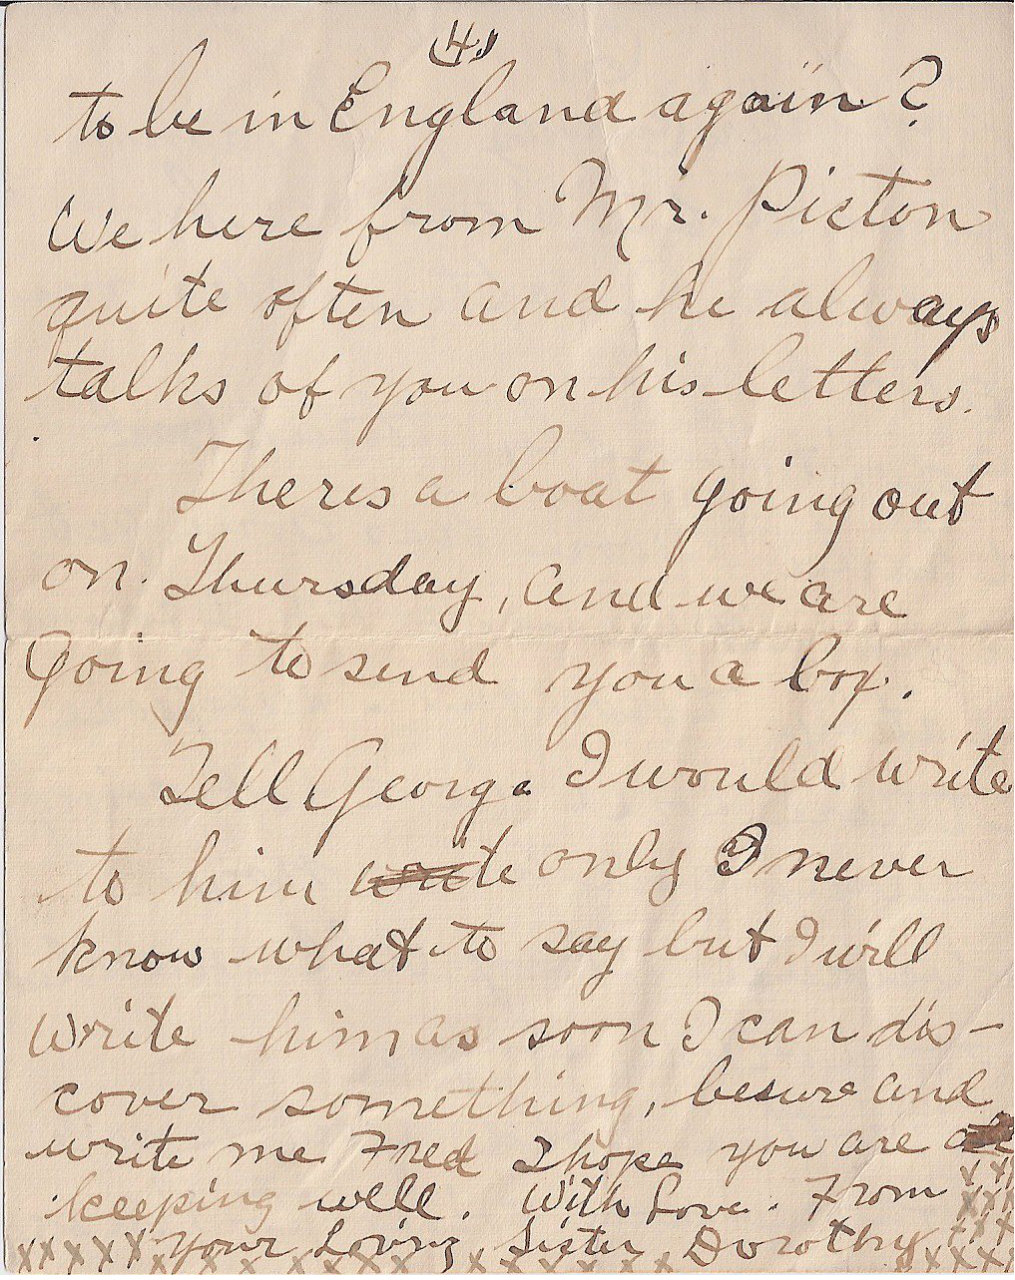 (4)
to be in England again?
We here from Mr. Picton
quite often and he always
talks of you on his letters.
Theres a boat going out
on. Thursday, and we are
going to send you a box.
Tell George I would write
to him write only I never
know what to say but I will
write him as soon I can dis-
cover something, besure and
write me Fred I hope you are
keeping well. With Love. From
xxxxxx your Loving Sister Dorothy